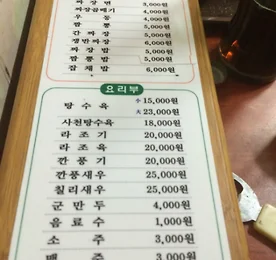 짜장면 3,000원
짜장곱빼기 4,000원
우동 4,000원
짬뽕 4,000원
간짜장 5,000원
쟁반짜장 6,000원
짜장밥 5,000원
짬뽕밥 5,000원
잡채밥 6,000원
요리부
탕수육 小 15,000원
大 23,000원
사천탕수육 18,000원
라조기 20,000원
라조육 20,000원
깐풍기 20,000원
깐풍새우 25,000원
칠리새우 25,000원
군만두 4,000원
음료수 1,000원
소주 3,000원
맥주 3,000원